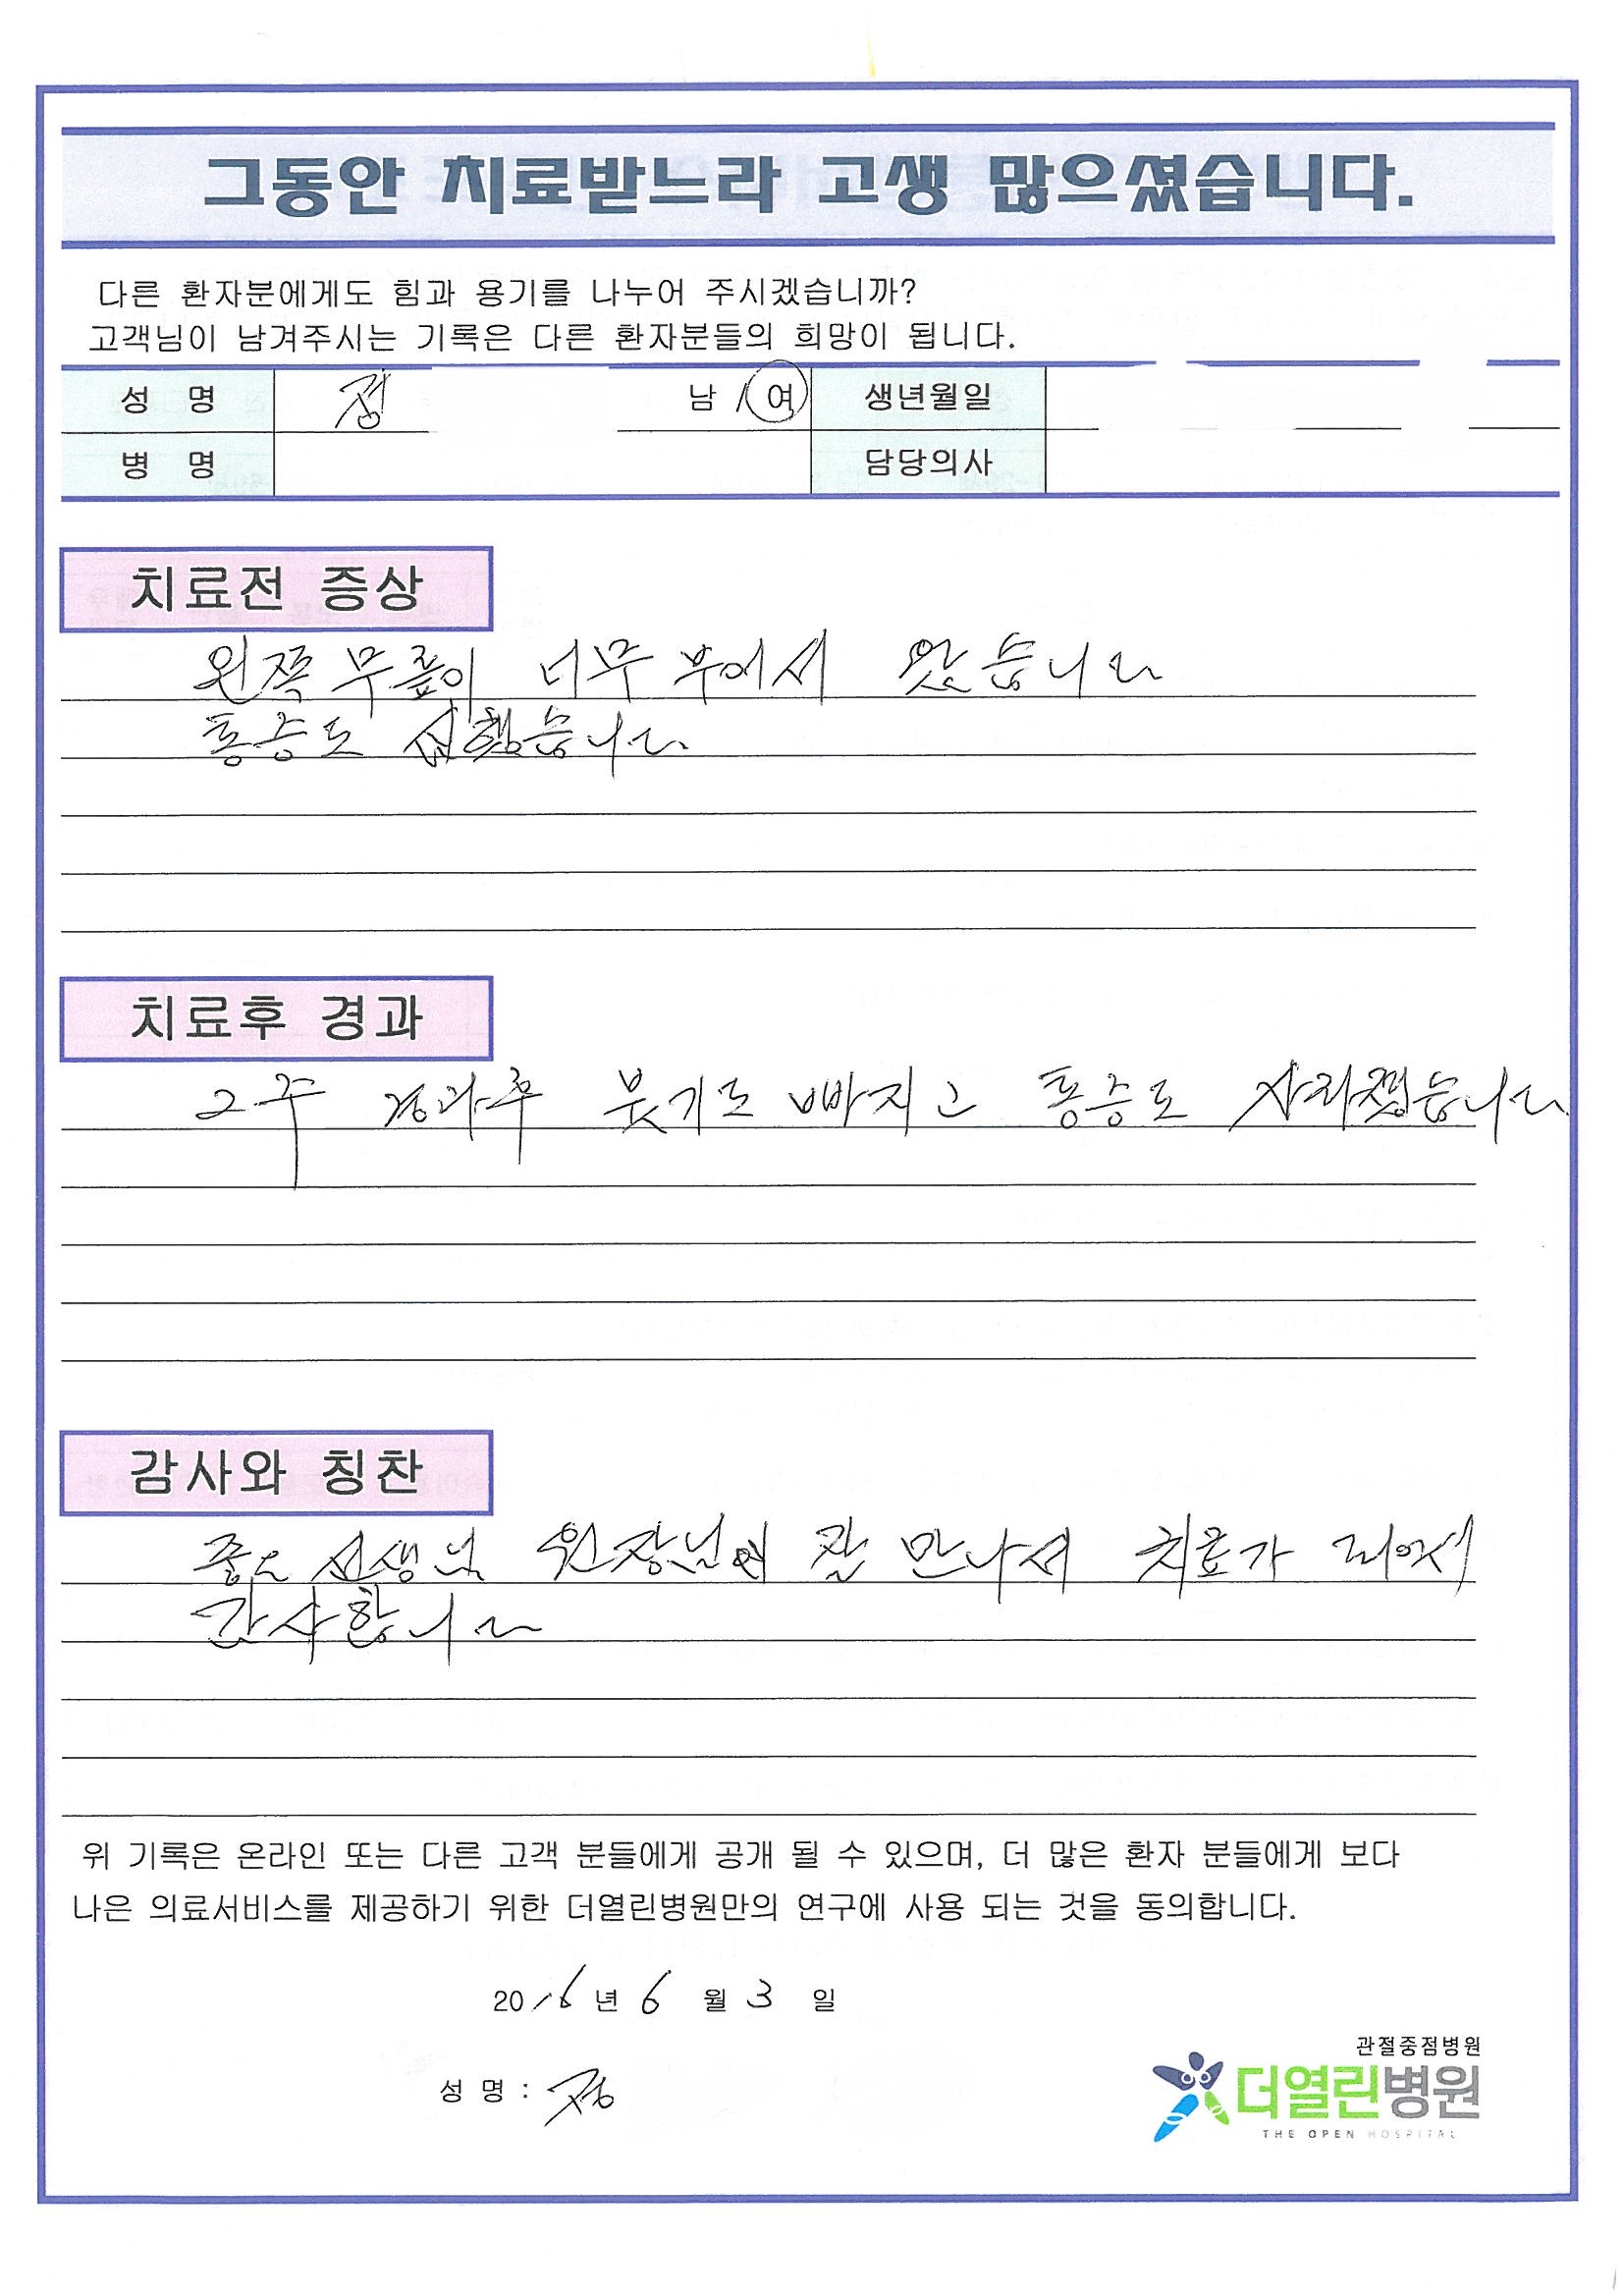 그동안 치료받느라 고생 많으셨습니다.
다른 환자분에게도 힘과 용기를 나누어 주시겠습니까?
고객님이 남겨주시는 기록은 다른 환자분들의 희망이 됩니다.
성 명 정 남 / 여 생년월일
병 명 담당의사
치료전 증상
왼쪽 무릎이 너무 부어서 왔습니다
통증도 심했습니다.
치료후 경과
2주 경과후 붓기도 빠지고 통증도 사라졌습니다.
감사와 칭찬
좋은 선생님 원장님 잘 만나서 치료가 되어서
감사합니다
위 기록은 온라인 또는 다른 고객 분들에게 공개 될 수 있으며, 더 많은 환자 분들에게 보다
나은 의료서비스를 제공하기 위한 더열린병원만의 연구에 사용 되는 것을 동의합니다.
2016 년 6 월 3 일
성 명 : 정
관절중점병원
더열린병원
THE OPEN HOSPITAL